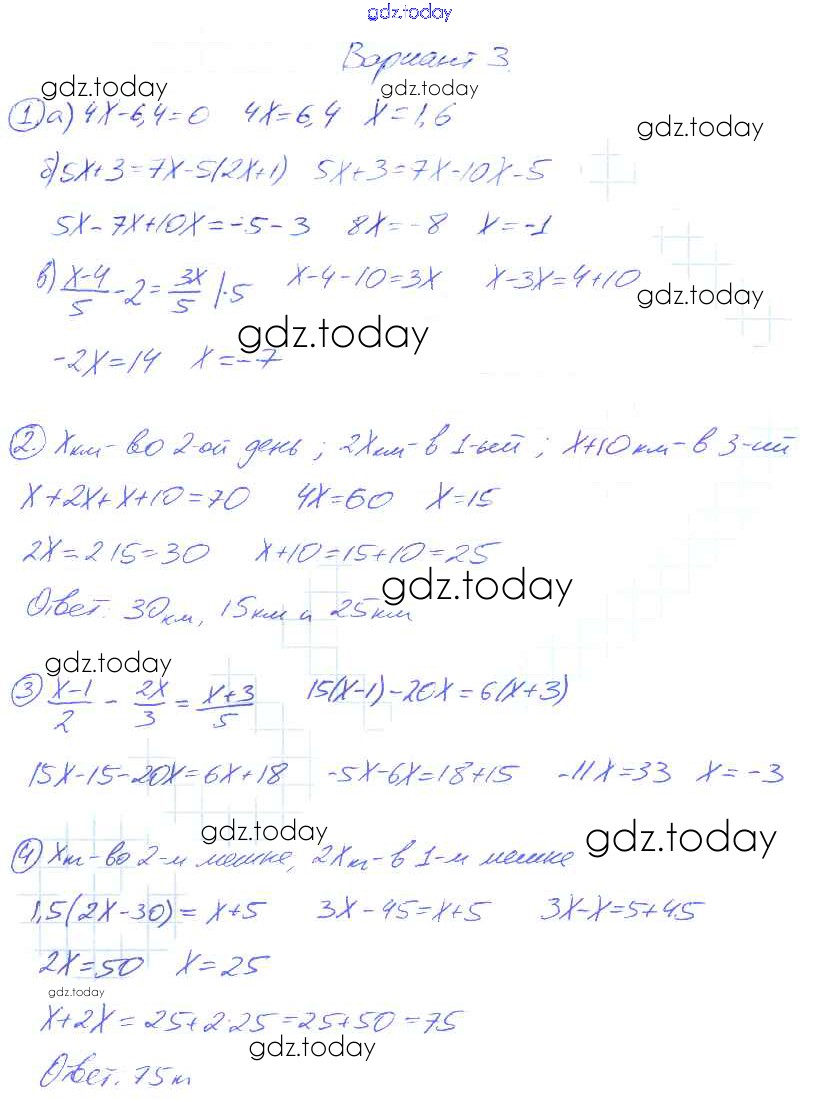 gdz.today
Вариант 3.
gdz.today gdz.today
1) а) 4х-6,4=0 4х=6,4 х=1,6
gdz.today
б) 5х+3=7х-5(2х+1) 5х+3=7х-10х-5
5х-7х+10х=-5-3 8х=-8 х=-1
в) (х-4)/5 -2= 3х/5 |·5 х-4-10=3х х-3х=4+10
gdz.today
gdz.today
-2х=14 х=-7
2) х км-во 2-ой день; 2х км-в 1-ый; х+10 км-в 3-ий
х+2х+х+10=70 4х=60 х=15
2х=2·15=30 х+10=15+10=25
gdz.today
Ответ: 30 км, 15 км и 25 км
gdz.today
3) (х-1)/2 - 2х/3 = (х+3)/5 15(х-1)-20х=6(х+3)
15х-15-20х=6х+18 -5х-6х=18+15 -11х=33 х=-3
gdz.today gdz.today
4) х кг-во 2-м мешке, 2х кг-в 1-м мешке
1,5(2х-30)=х+5 3х-45=х+5 3х-х=5+45
2х=50 х=25
gdz.today
х+2х=25+2·25=25+50=75
gdz.today
Ответ: 75 кг